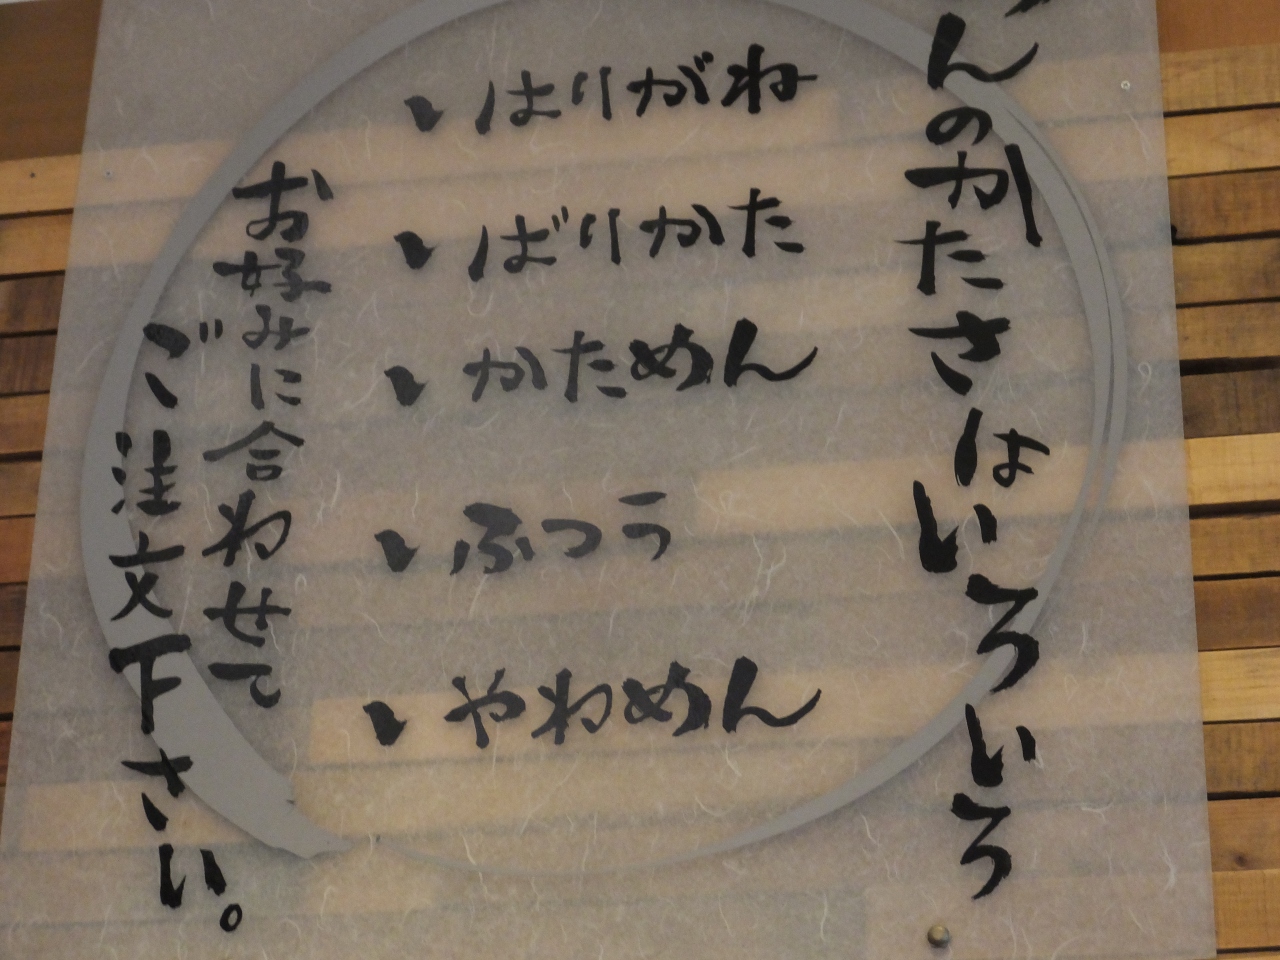 んのかたさはいろいろ
はりがね
ばりかた
かためん
ふつう
やわめん
お好みに合わせて
ご注文下さい。